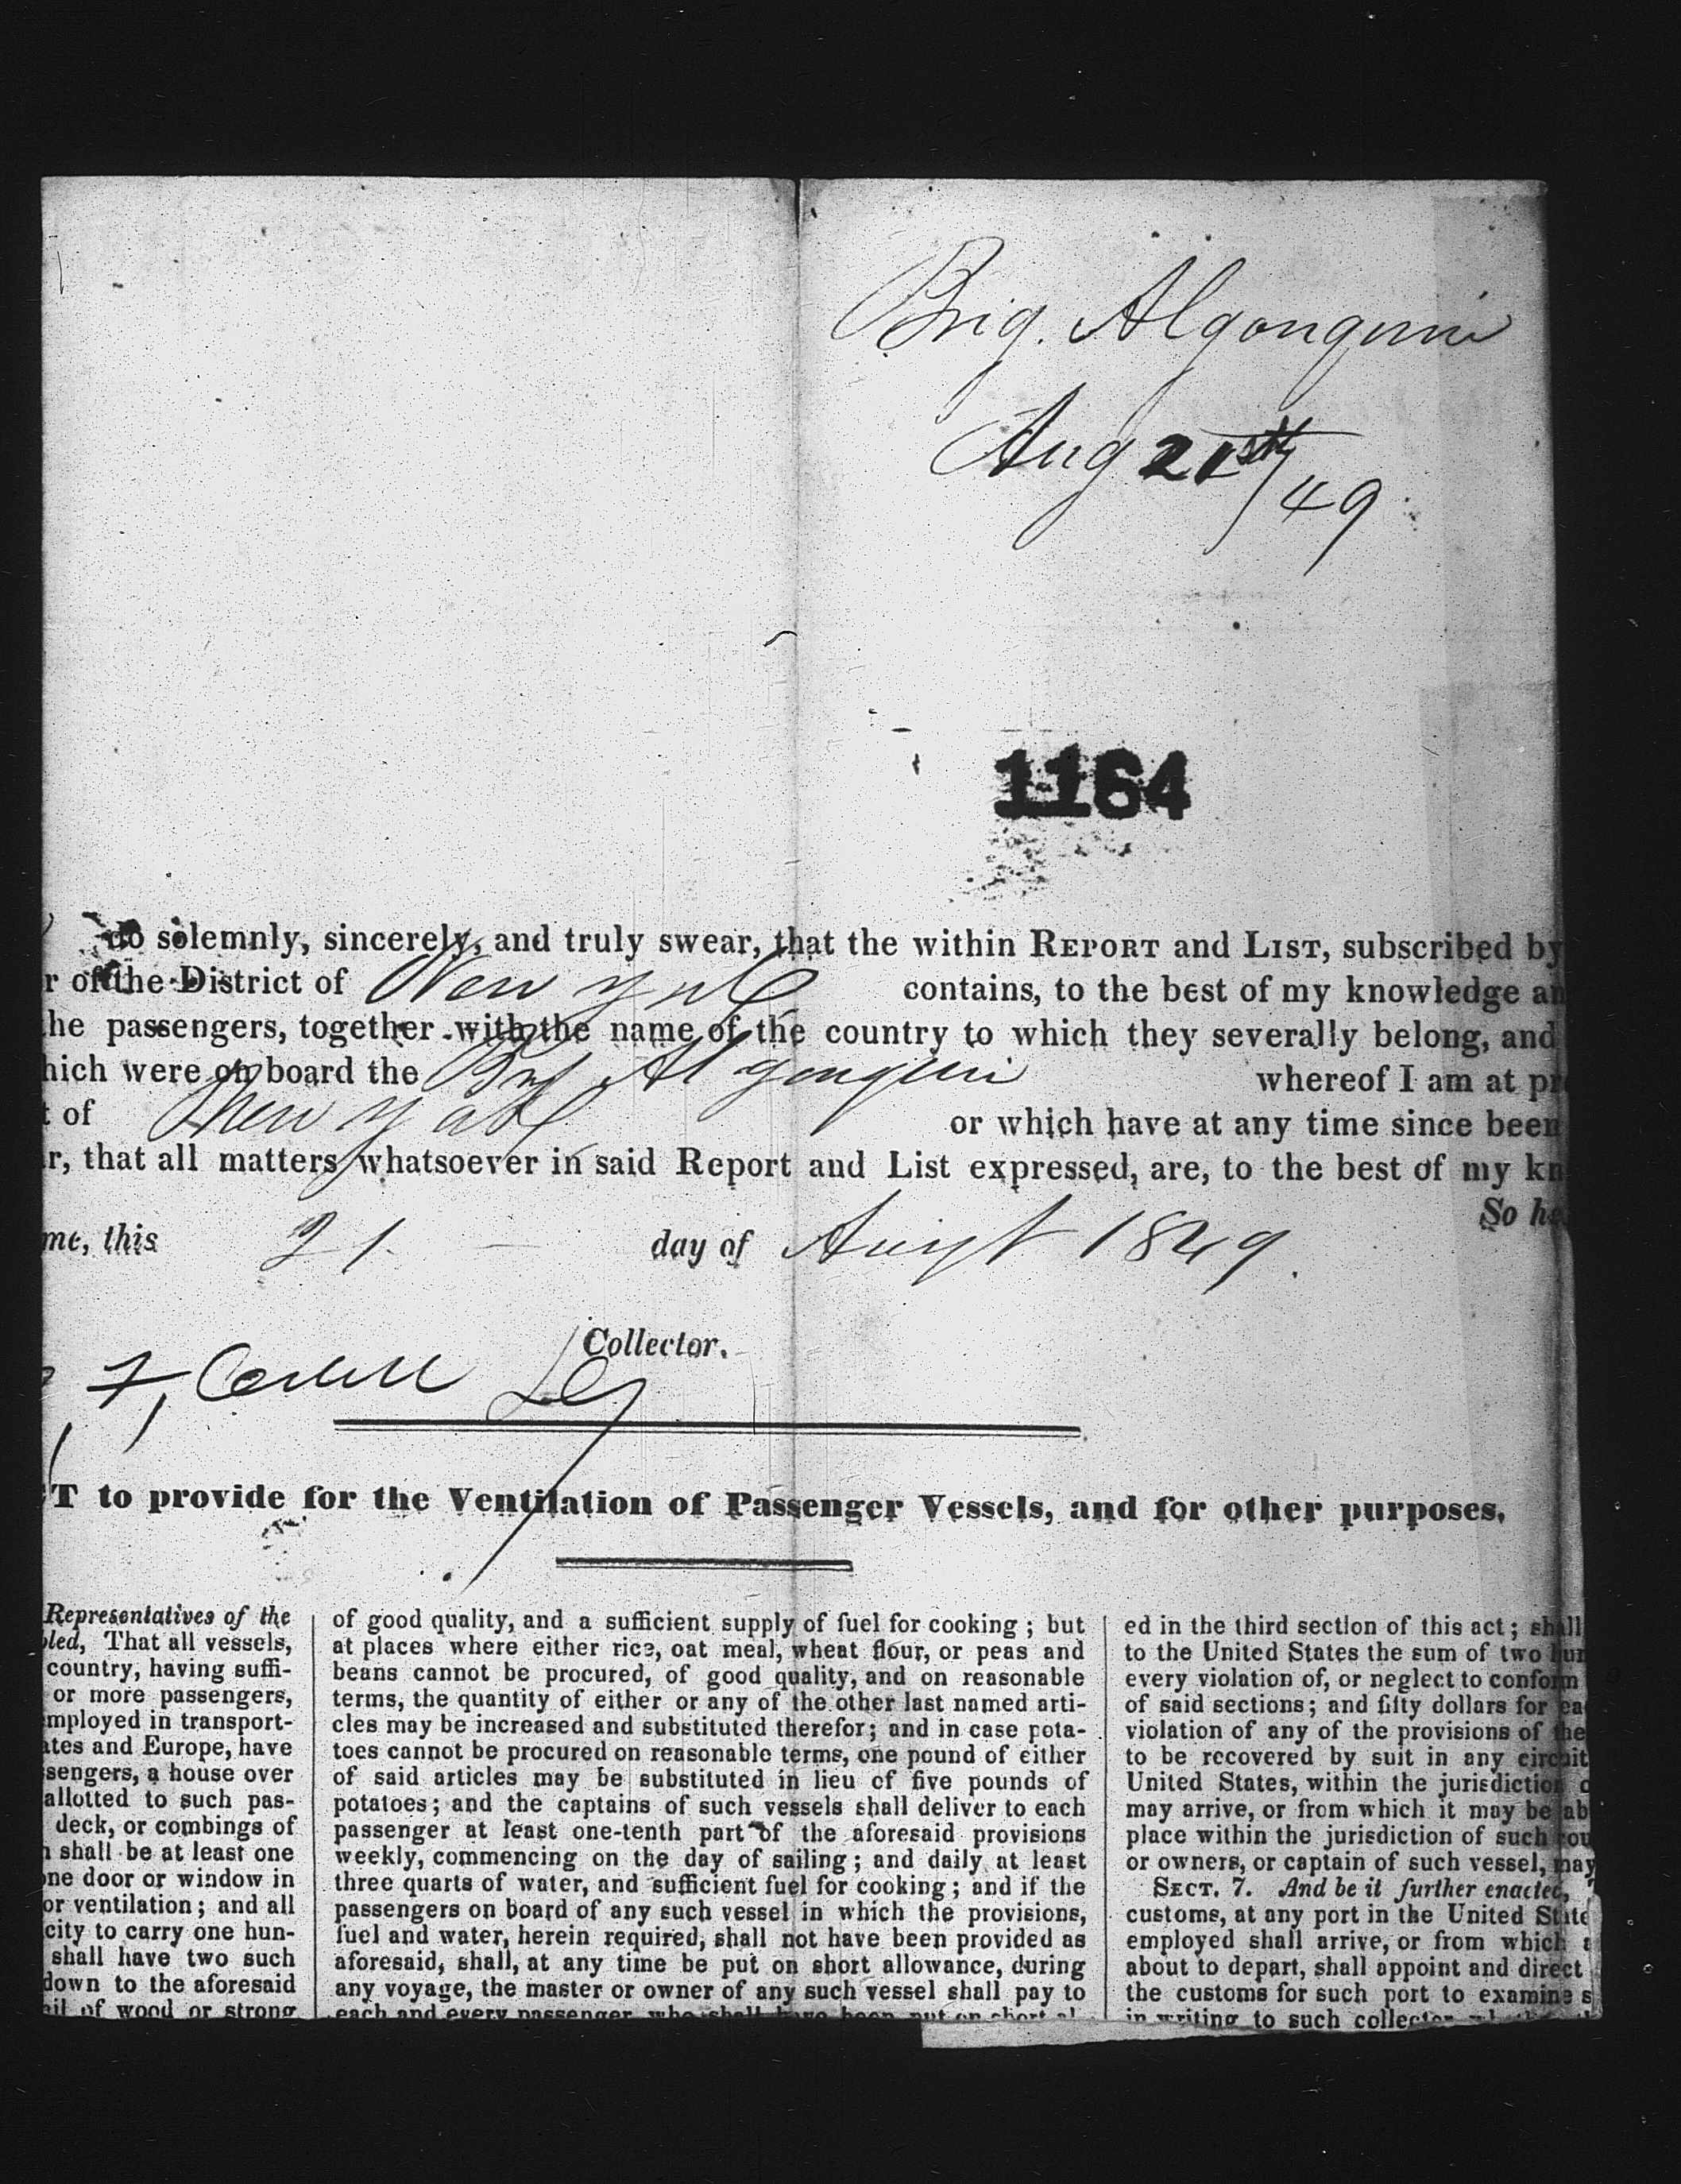 Brig. Algonquin
Aug 21st /49
1164
do solemnly, sincerely, and truly swear, that the within REPORT and LIST, subscribed by
r of the District of New York contains, to the best of my knowledge an
he passengers, together with the name of the country to which they severally belong, and
hich were on board the Brig Algonquin whereof I am at pr
t of New York or which have at any time since been
r, that all matters whatsoever in said Report and List expressed, are, to the best of my kn
So he
me, this 21 day of Augt 1849.
Collector.
T to provide for the Ventilation of Passenger Vessels, and for other purposes.
Representatives of the
bled, That all vessels,
country, having suffi-
or more passengers,
mployed in transport-
ates and Europe, have
sengers, a house over
allotted to such pas-
deck, or combings of
h shall be at least one
one door or window in
or ventilation; and all
city to carry one hun-
shall have two such
down to the aforesaid
ail of wood or strong
of good quality, and a sufficient supply of fuel for cooking; but
at places where either rice, oat meal, wheat flour, or peas and
beans cannot be procured, of good quality, and on reasonable
terms, the quantity of either or any of the other last named arti-
cles may be increased and substituted therefor; and in case pota-
toes cannot be procured on reasonable terms, one pound of either
of said articles may be substituted in lieu of five pounds of
potatoes; and the captains of such vessels shall deliver to each
passenger at least one-tenth part of the aforesaid provisions
weekly, commencing on the day of sailing; and daily at least
three quarts of water, and sufficient fuel for cooking; and if the
passengers on board of any such vessel in which the provisions,
fuel and water, herein required, shall not have been provided as
aforesaid, shall, at any time be put on short allowance, during
any voyage, the master or owner of any such vessel shall pay to
each and every passenger who shall have been put on short al
ed in the third section of this act; shall
to the United States the sum of two hun
every violation of, or neglect to conform
of said sections; and fifty dollars for ea
violation of any of the provisions of the
to be recovered by suit in any circuit
United States, within the jurisdiction o
may arrive, or from which it may be ab
place within the jurisdiction of such cou
or owners, or captain of such vessel, may
SECT. 7. And be it further enacted,
customs, at any port in the United State
employed shall arrive, or from which a
about to depart, shall appoint and direct
the customs for such port to examine s
in writing to such collector